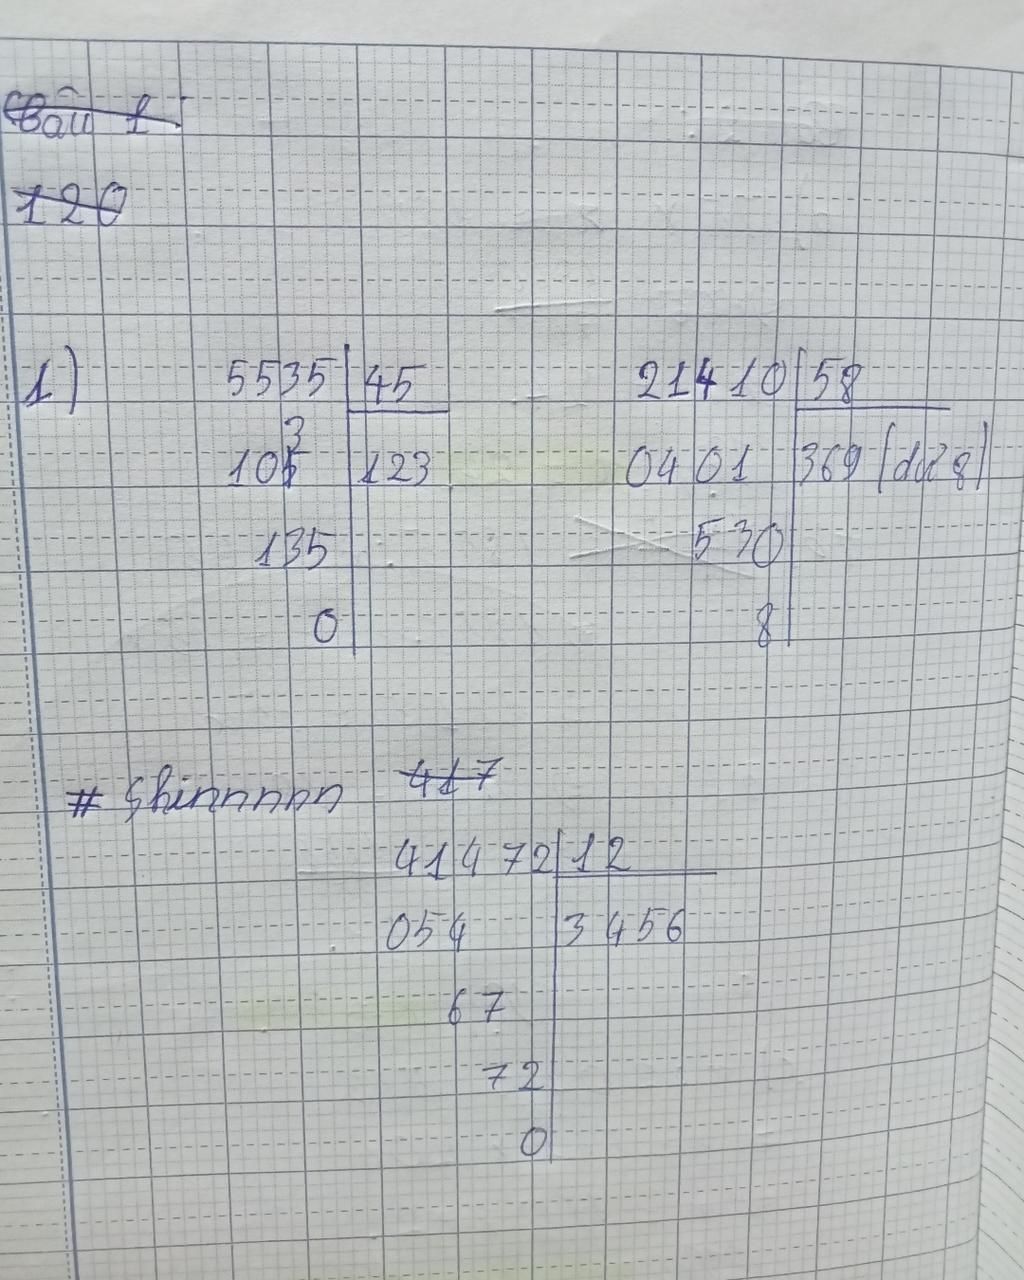 Bài 1
120
1) 5535 45 21410 58
103 123 0401 369 (dư 8)
135 530
0 8
# Shinnnnn 417
41472 12
054 3456
67
72
0